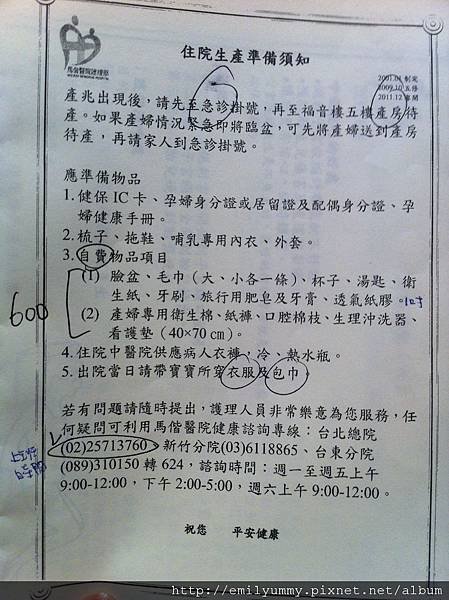 馬偕醫院護理部
住院生產準備須知
2001.04 制定
2009.10 五修
2011.12 審閱
產兆出現後，請先至急診掛號，再至福音樓五樓產房待
產。如果產婦情況緊急即將臨盆，可先將產婦送到產房
待產，再請家人到急診掛號。
應準備物品
1. 健保 IC 卡、孕婦身分證或居留證及配偶身分證、孕
婦健康手冊。
2. 梳子、拖鞋、哺乳專用內衣、外套。
3. 自費物品項目
(1) 臉盆、毛巾（大、小各一條）、杯子、湯匙、衛
生紙、牙刷、旅行用肥皂及牙膏、透氣紙膠。1吋
600
(2) 產婦專用衛生棉、紙褲、口腔棉枝、生理沖洗器、
看護墊（40×70 cm）。
4. 住院中醫院供應病人衣褲，冷、熱水瓶。
5. 出院當日請帶寶寶所穿衣服及包巾。
若有問題請隨時提出，護理人員非常樂意為您服務，任
何疑問可利用馬偕醫院健康諮詢專線：台北總院
(02)25713760、新竹分院(03)6118865、台東分院
(089)310150 轉 624，諮詢時間：週一至週五上午
9:00-12:00，下午 2:00-5:00，週六上午 9:00-12:00。
祝您　平安健康
http://emilyummy.pixnet.net/album